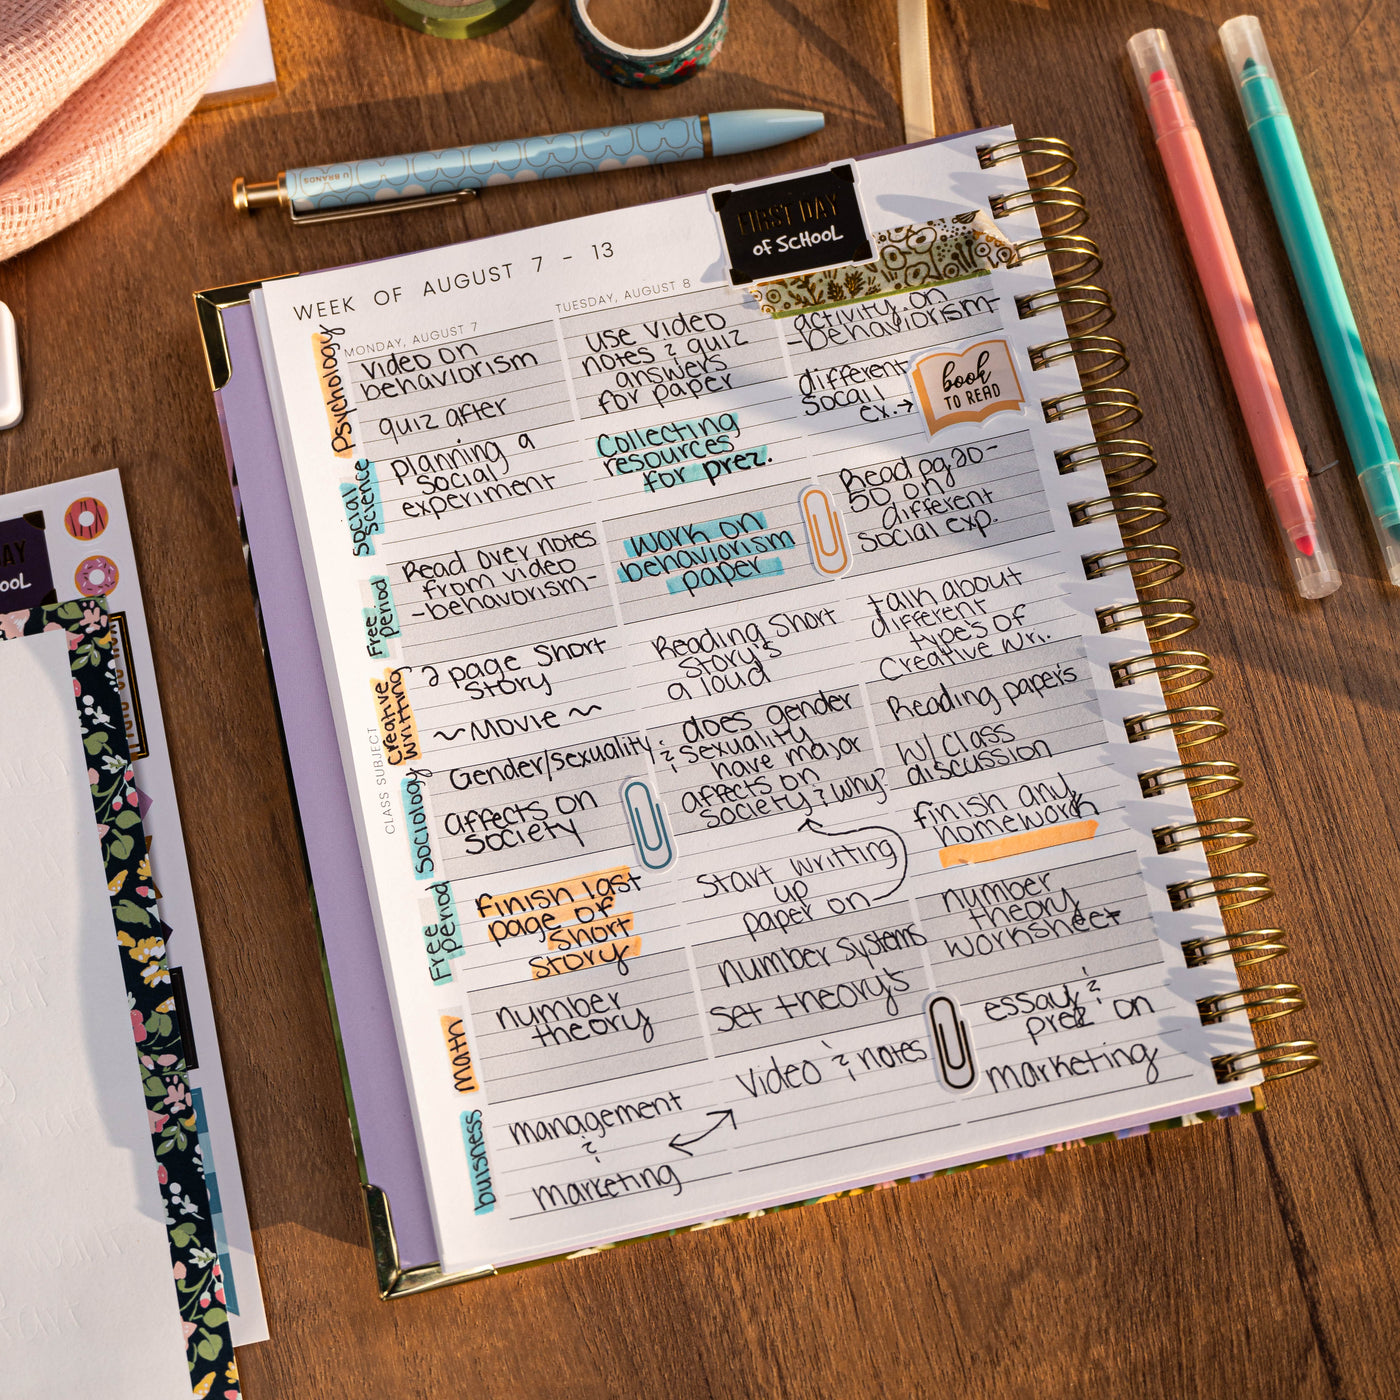 U BRANDS
FIRST DAY
of SCHOOL
WEEK OF AUGUST 7 - 13
MONDAY, AUGUST 7
TUESDAY, AUGUST 8
CLASS SUBJECT
Psychology
video on
behaviorism
quiz after
use video
notes & quiz
answers
for paper
activity on
-behaviorism-
Social
Science
planning a
social
experiment
Collecting
resources
for prez.
different
socail
ex.→
book
TO READ
Free
period
Read over notes
from video
-behavorism-
Work on
behaviorism
paper
Read pg 20-
50 on
different
social exp.
Creative
writting
2 page short
story
~Movie~
Reading short
story's
a loud
talk about
different
types of
creative wri.
Sociology
Gender/sexuality
affects on
society
does gender
& sexuality
have major
affects on
society & why?
Reading paper's
w/ class
discussion
Free
period
finish last
page of
short
story
Start writting
up
paper on
finish any
homework
Math
number
theory
number systems
set theory's
number
theory
worksheet
buisness
management
&
marketing
Video & notes
essay &
prez on
marketing
AY
OOL